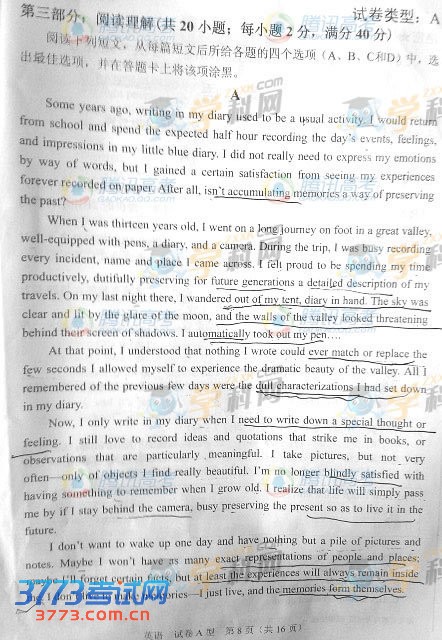 试卷类型：A
第三部分：阅读理解(共 20 小题；每小题 2 分，满分 40 分)
阅读下列短文，从每篇短文后所给各题的四个选项（A、B、C和D）中，选
出最佳选项，并在答题卡上将该项涂黑。
A
Some years ago, writing in my diary used to be a usual activity. I would return
from school and spend the expected half hour recording the day's events, feelings,
and impressions in my little blue diary. I did not really need to express my emotions
by way of words, but I gained a certain satisfaction from seeing my experiences
forever recorded on paper. After all, isn't accumulating memories a way of preserving
the past?
When I was thirteen years old, I went on a long journey on foot in a great valley,
well-equipped with pens, a diary, and a camera. During the trip, I was busy recording
every incident, name and place I came across. I felt proud to be spending my time
productively, dutifully preserving for future generations a detailed description of my
travels. On my last night there, I wandered out of my tent, diary in hand. The sky was
clear and lit by the glare of the moon, and the walls of the valley looked threatening
behind their screen of shadows. I automatically took out my pen….
At that point, I understood that nothing I wrote could ever match or replace the
few seconds I allowed myself to experience the dramatic beauty of the valley. All I
remembered of the previous few days were the dull characterizations I had set down
in my diary.
Now, I only write in my diary when I need to write down a special thought or
feeling. I still love to record ideas and quotations that strike me in books, or
observations that are particularly meaningful. I take pictures, but not very
often—only of objects I find really beautiful. I'm no longer blindly satisfied with
having something to remember when I grow old. I realize that life will simply pass
me by if I stay behind the camera, busy preserving the present so as to live it in the
future.
I don't want to wake up one day and have nothing but a pile of pictures and
notes. Maybe I won't have as many exact representations of people and places;
maybe I'll forget certain facts, but at least the experiences will always remain inside
me. I don't live to make memories—I just live, and the memories form themselves.
英语 试卷 A 型 第 8 页（共 16 页）
3773考试网
www.3773.com.cn
学科网
腾讯高考